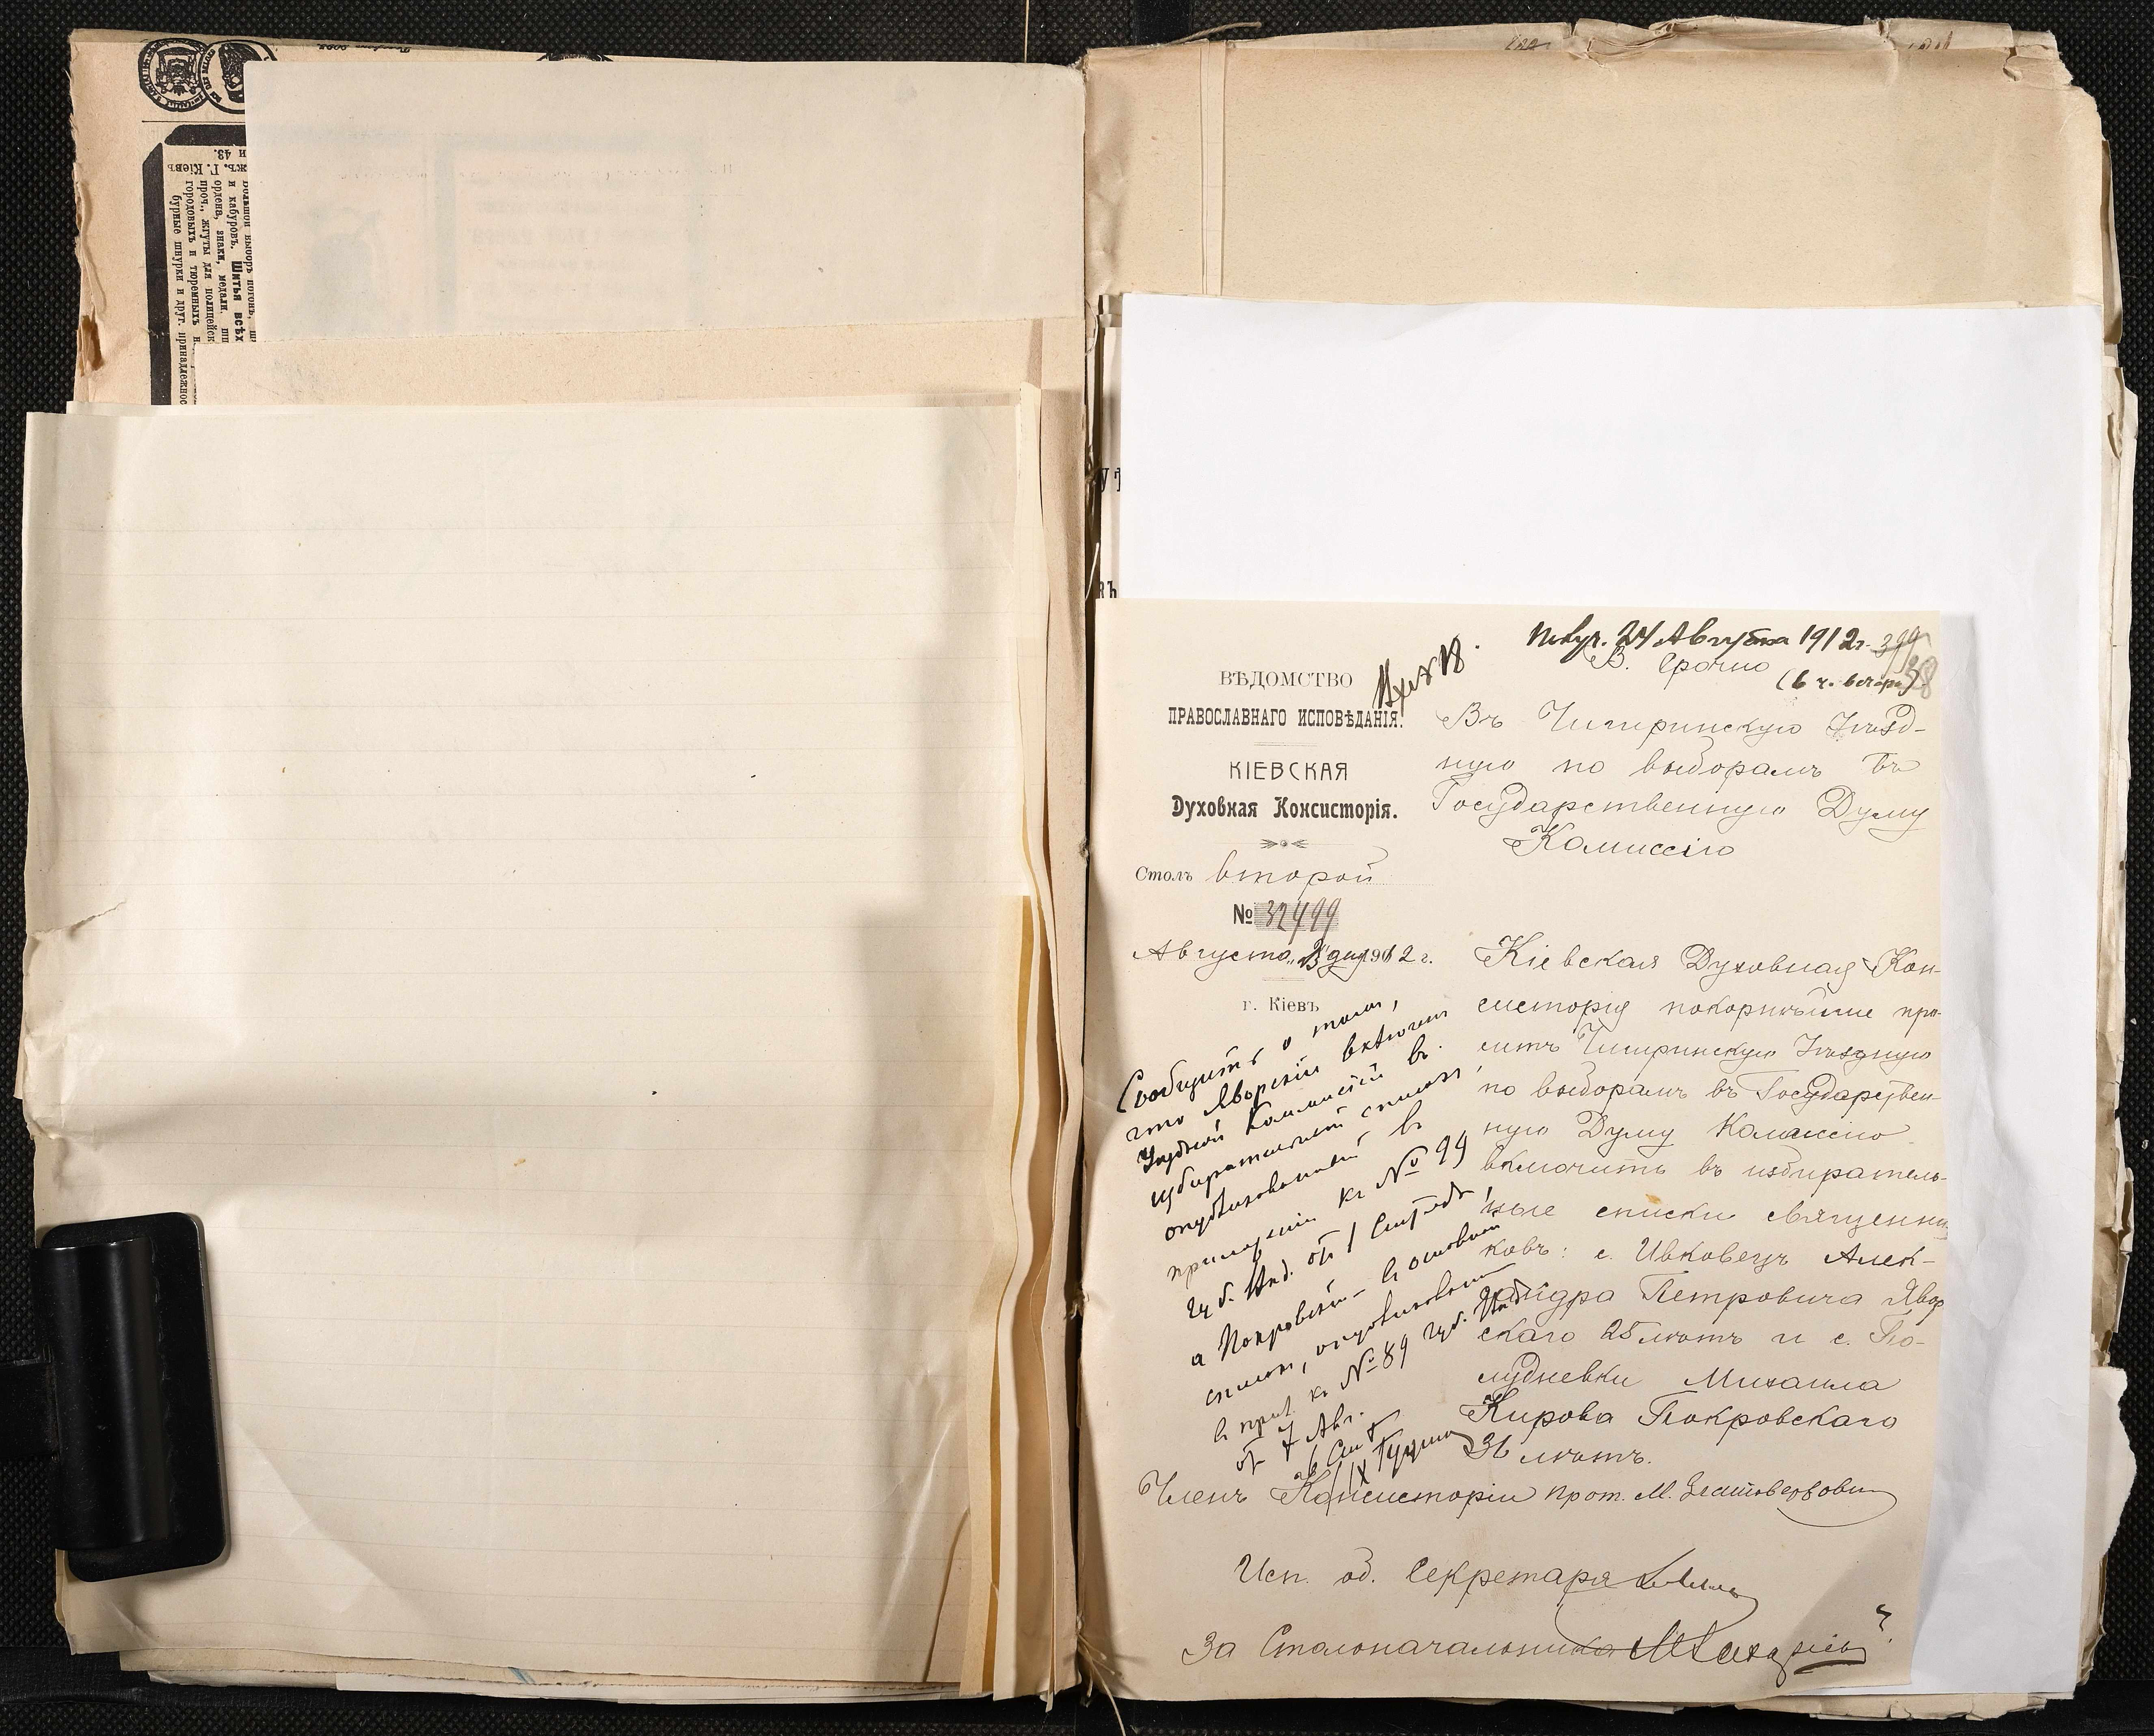 и 43.
жъ. Г. Кіевъ
Большой выборъ погонъ,
и кабуровъ. Шитья всѣх
ордена, знаки, медали,
проч., жгуты для полицейск
городовыхъ и тюремныхъ н
бурные шнурки и друг. принадлежнос
Получ. 24 Августа 1912 г. 399
В. Срочно
(6 ч. вечера) 38
Вход
ВѢДОМСТВО
ПРАВОСЛАВНАГО ИСПОВѢДАНІЯ.
КІЕВСКАЯ
Духовная Консисторія.
Столъ второй
№ 32499
Августа „ дня 1912 г.
г. Кіевъ
Въ Чигиринскую Уѣзд-
ную по выборамъ въ
Государственную Думу
Комиссію
Кіевская Духовная Кон-
систорія покорнѣйше про-
ситъ Чигиринскую Уѣздную
по выборамъ въ Государствен-
ную Думу Комиссію
включить въ избиратель-
ные списки священни-
ковъ: с. Ивковецъ Алек-
сандра Петровича Явор-
скаго 25 лѣтъ и с. По-
лудневки Михаила
Кирова Покровскаго
36 лѣтъ.
Сообщить о томъ,
что Яворскій включен
Уѣздной Коммисіей въ
избирательный списокъ,
опубликованный въ
приложеніи къ № 99
Губ. Вѣд. от 1 Сентября,
а Покровскій – въ основной
список, опубликован
в прил. къ № 89 губ. Вѣд.
от 7 Авг.
Членъ Консисторіи прот. М. Златоверховников
Исп. об. Секретаря
За Столоначальника